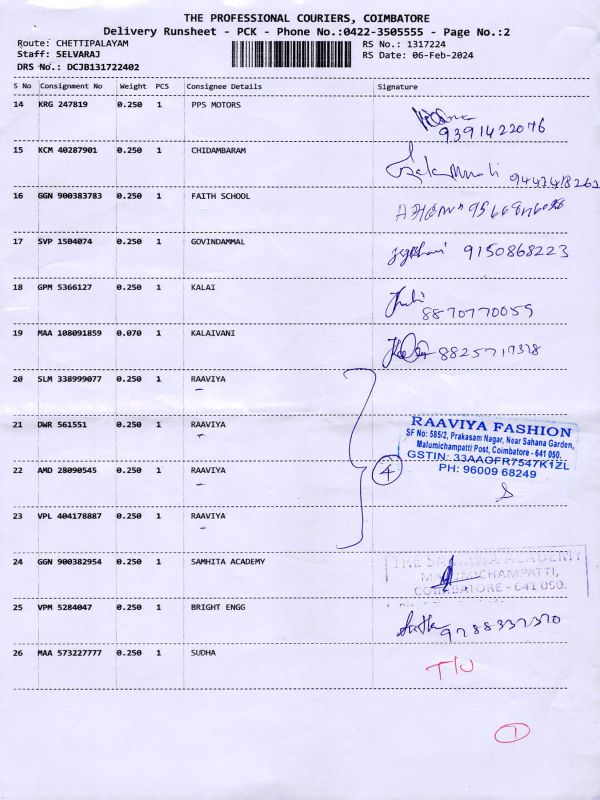 THE PROFESSIONAL COURIERS, COIMBATORE
Delivery Runsheet - PCK - Phone No.:0422-3505555 - Page No.:2
Route: CHETTIPALAYAM RS No.: 1317224
Staff: SELVARAJ RS Date: 06-Feb-2024
DRS No.: DCJB131722402
S No Consignment No Weight PCS Consignee Details Signature
14 KRG 247819 0.250 1 PPS MOTORS
9391422076
15 KCM 40287901 0.250 1 CHIDAMBARAM
16 GGN 900383783 0.250 1 FAITH SCHOOL
17 SVP 1504074 0.250 1 GOVINDAMMAL
9150868223
18 GPM 5366127 0.250 1 KALAI
8870770059
19 MAA 108091859 0.070 1 KALAIVANI
8825717318
20 SLM 338999077 0.250 1 RAAVIYA
21 DWR 561551 0.250 1 RAAVIYA
22 AMD 28090545 0.250 1 RAAVIYA
23 VPL 404178887 0.250 1 RAAVIYA
4
RAAVIYA FASHION
SF No: 585/2, Prakasam Nagar, Near Sahana Garden,
Malumichampatti Post, Coimbatore - 641 050.
GSTIN: 33AAOFR7547K1ZL
PH: 96009 68249
24 GGN 900382954 0.250 1 SAMHITA ACADEMY
THE SAMHITA ACADEMY
MALUMICHAMPATTI,
COIMBATORE - 641 050.
25 VPM 5284047 0.250 1 BRIGHT ENGG
9788337370
26 MAA 573227777 0.250 1 SUDHA
T/U
1